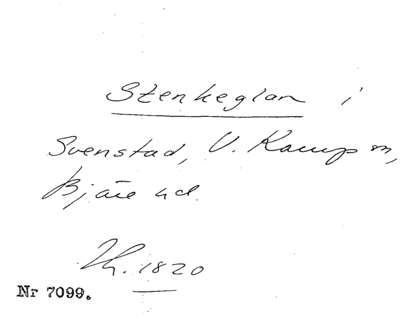 Stenkeglan i
Svenstad, V. Karup sn,
Bjäre hd.
Th. 1820
Nr 7099.